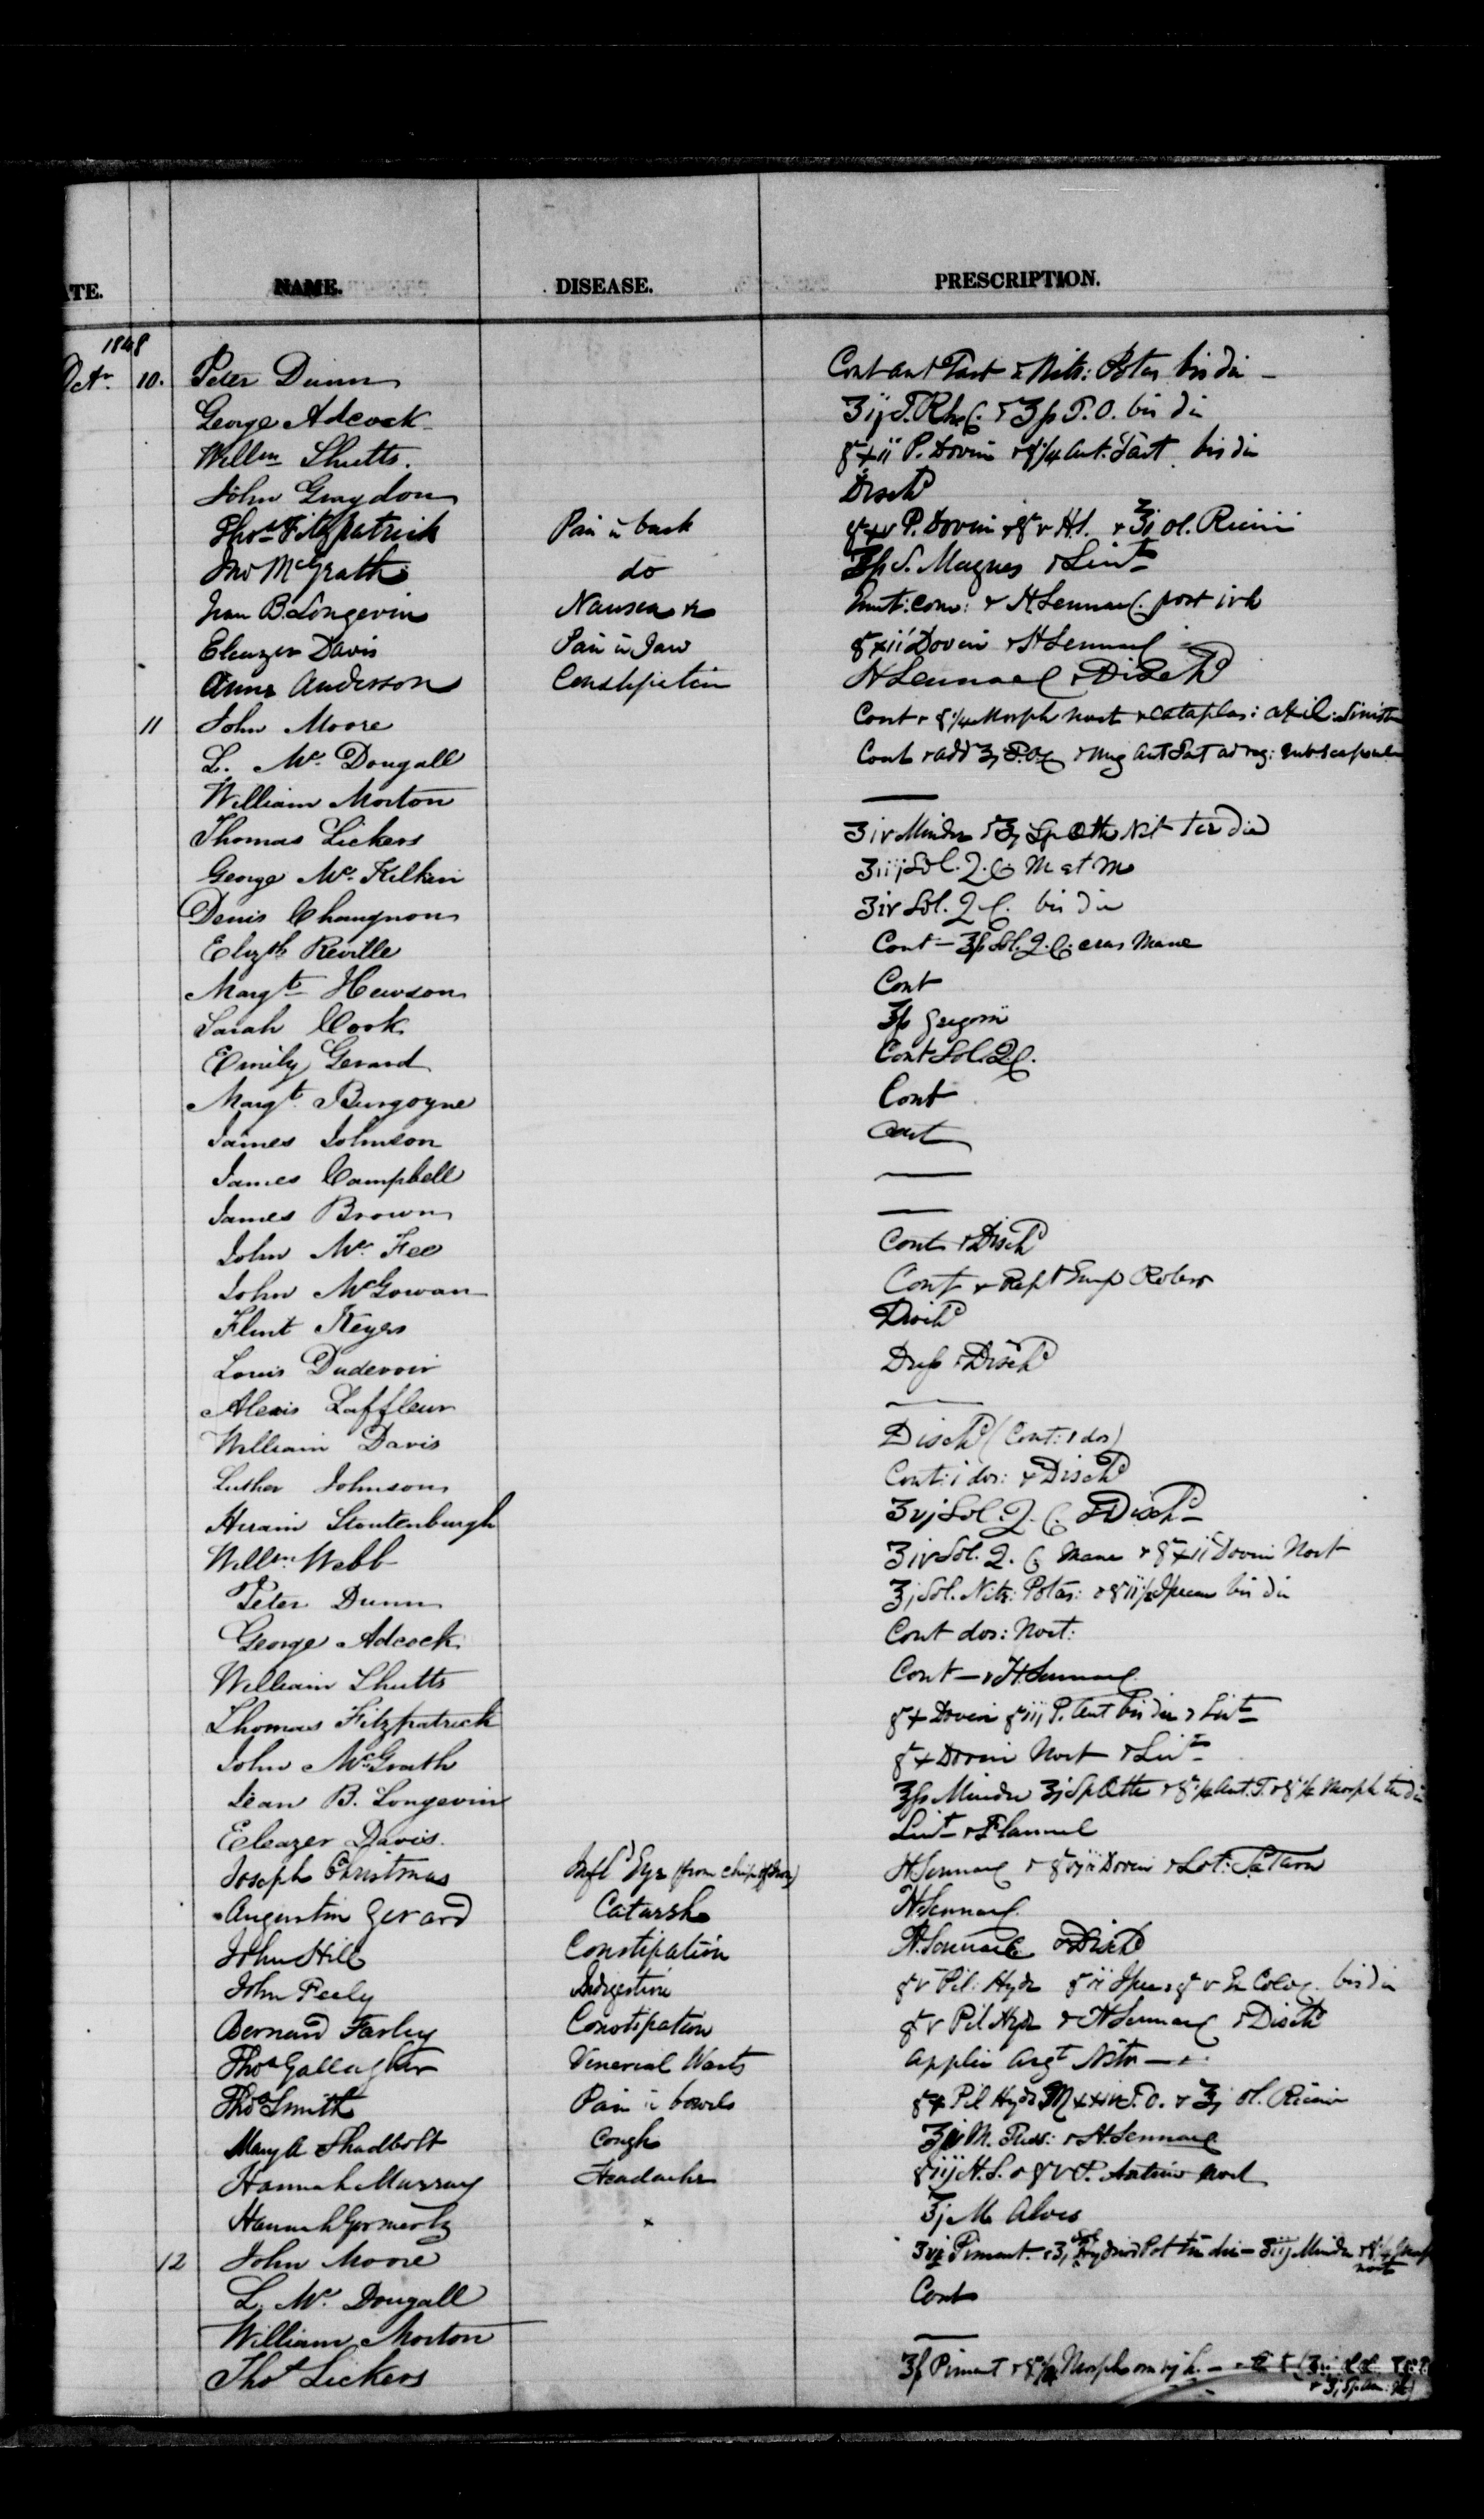 ATE. NAME. DISEASE. PRESCRIPTION.
1848
Octr 10. Peter Dunn Cont Ant Tart & Nitr: Potas bis die –
George Adcock ʒij T. Rhei C. & ʒſs T.O. bis die
Willm Shutts. grxii P. Doveri & gr1/4 Ant: Tart bis die
John Graydon Dischd
Thos Fitzpatrick Pain in back grxv P. Doveri & grv H.S. & ℥j Ol. Ricini
Jno McGrath do ℥ſs S. Magnes & Lint
Jean B. Longevin Nausea &c Emet: com: & H Sennae C. post
Eleazer Davis Pain in Jaw grxii Doveri & H Sennae C
Anne Anderson Constipation H Sennae C & Dischd
11 John Moore Cont & gr1/4 Morph noct & Cataplas: sinist
L. Mc Dougall Cont & add ʒj T.O.C & Ung Ant Tat ad reg: subscapular
William Morton —
Thomas Lickers ʒiv Minder & ʒj Sp Æth Nit ter die
George Mc Kilkin ʒiij Sol. Q. C. M et M
Denis Changnon ʒiv Sol. Q C. bis die
Elizth Reville Cont – ℥ſs Sol. Q. C. cras Mane
Margt Hewson Cont
Sarah Cook ʒſs Gregorii
Emily Gerard Cont Sol. Q C.
Margt Burgoyne Cont
James Johnson Cont
James Campbell —
James Brown —
John Mc Fee Cont & Dischd
John McGowan Cont & Rept Emp Robor
Flint Keyes Dischd
Louis Dudevoir Dress & Dischd
Alexis Laffleur —
William Davis Dischd (Cont: 1 dos)
Luther Johnson Cont: i dos: & Dischd
Hiram Stoutenburgh ʒvj Sol. Q. C. & Dischd
Willm Webb ʒiv Sol. Q. C Mane & grxii Doveri Noct
Peter Dunn ʒj Sol. Nitr: Potas: & grii Ipecac bis die
George Adcock Cont dos: Noct:
William Shutts Cont – & H. Sennae C
Thomas Fitzpatrick grx Doveri griij P. Ant bis die & Lint
John McGrath grx Doveri Noct & Lint
Jean B. Longevin ℥ſs Minder ʒj Sp Æth & gr1/4 Ant. T. & gr1/4 Morph ter die
Eleazer Davis. Lint & Flannel
Joseph Christmas Infld Eye (from chip of Iron) H. Sennae C & Doveri & Lot: Saturn
Augustin Gerard Catarrh H. Sennae C
John Hill Constipation H. Sennae C & Dischd
John Feely Indigestion grv Pil: Hydr grii Ipec & grv Ex Coloc bis die
Bernard Farley Constipation grv Pil Hydr & H Sennae C & Dischd
Thos Gallagher Venereal Warts Applic Argt Nitr –
Thos Smith Pain in bowels grx Pil Hydr T.O. & ℥j Ol. Ricini
Mary A Shadbolt Cough M. Tuss: & H. Sennae C
Hannah Murray Headache griij H.S. & grv P. Antim noct
Hannah × ℥j M Aloes
12 John Moore ʒvj Piment. & ʒj Sol Hydriod Pot ter die – ʒiij Minder & gr1/4 Morph noct
L. Mc Dougall Cont
William Morton —
Thos Lickers ℥ſs Piment & gr1/4 Morph om